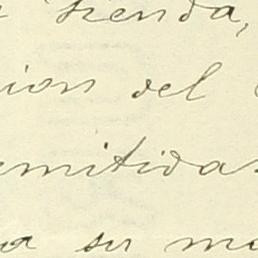 tienda,
ion del
emitidas
a su ma